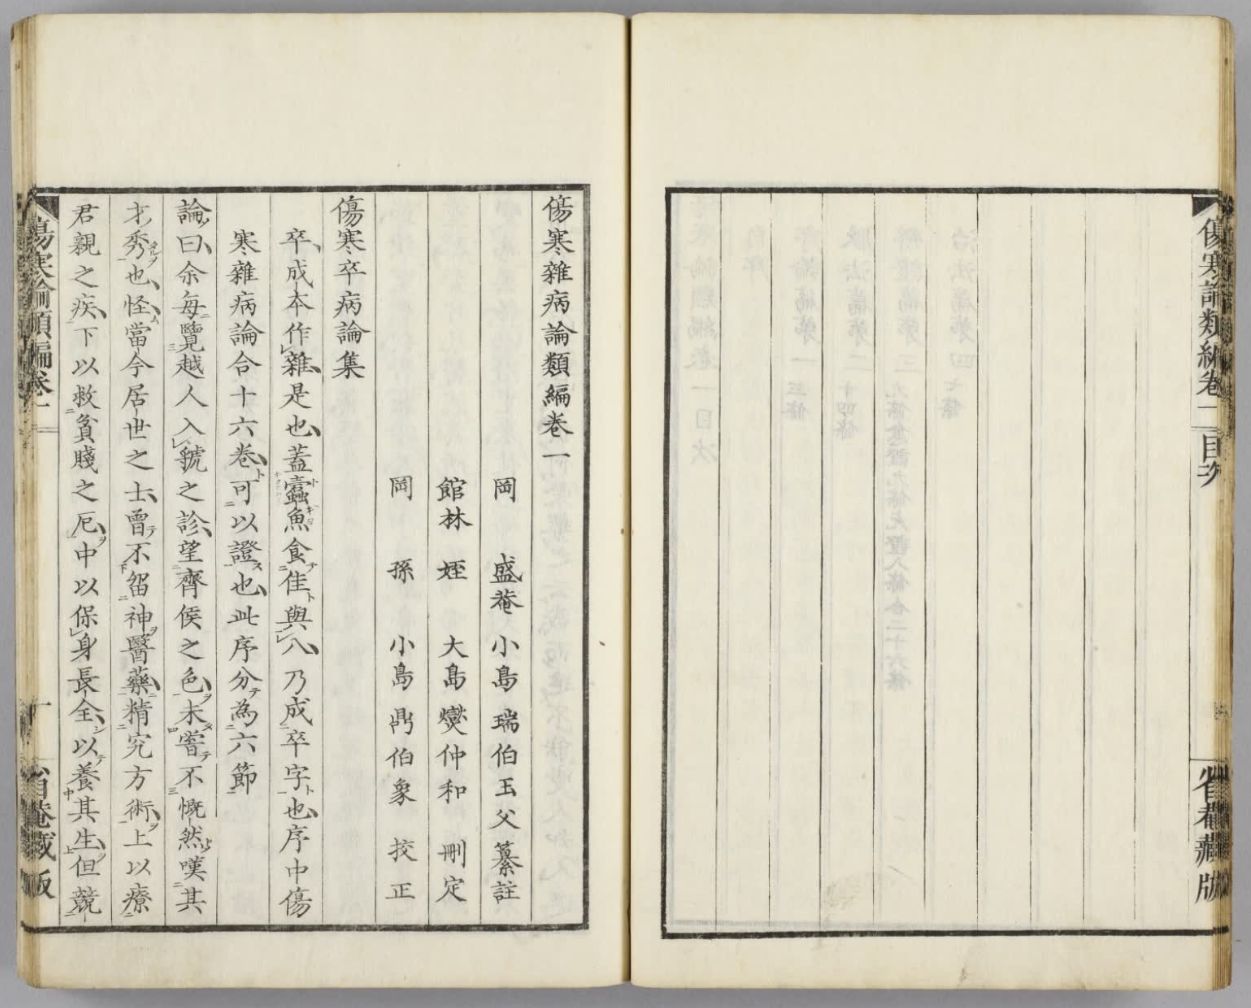 傷寒論類編卷一 目次
省菴藏版
傷寒雜病論類編卷一
岡 盛菴 小島 瑞伯玉父 纂註
館林 姪 大島 燮仲和 刪定
岡 孫 小島 鼎伯象 挍正
傷寒卒病論集
卒、成本作雜、是也、蓋蠹魚食隹與八、乃成卒字也、序中傷
寒雜病論合十六卷、可以證也、此序分為六節
論曰、余每覽越人入虢之診、望齊侯之色、未嘗不慨然嘆其
才秀也、怪當今居世之士、曾不留神醫藥、精究方術、上以療
君親之疾、下以救貧賤之厄、中以保身長全、以養其生、但競
傷寒論類編卷一
省菴藏版